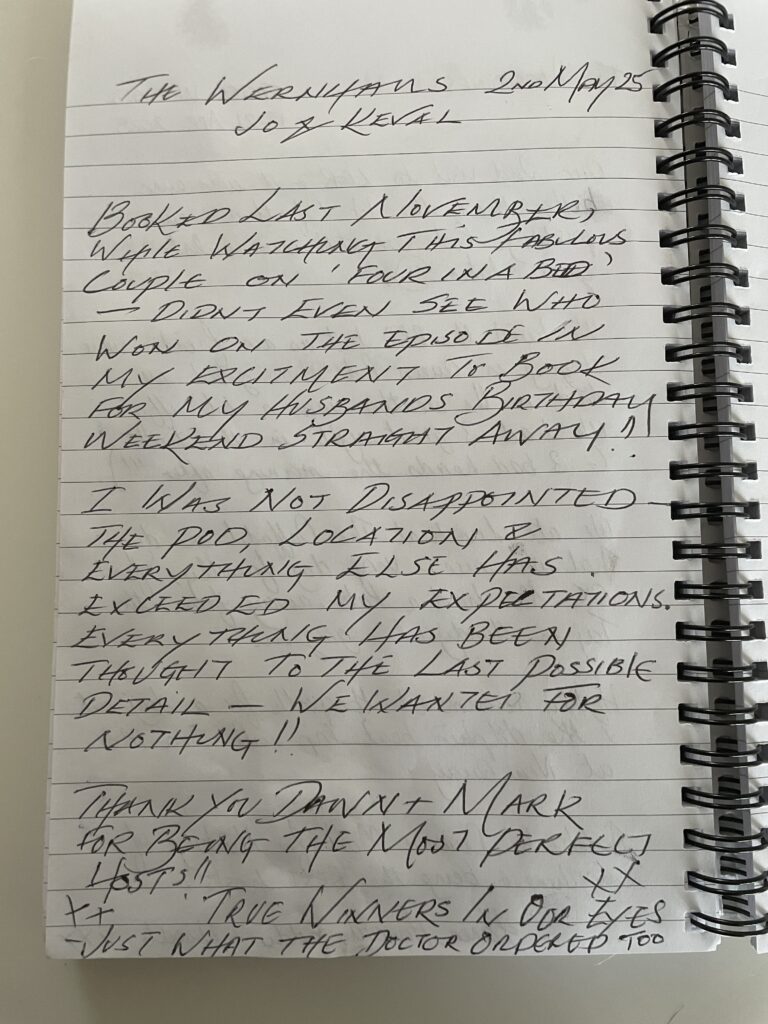 THE WERNHAUS 2ND MAY 25
JO & KEVAL
BOOKED LAST NOVEMBER,
WHILE WATCHING THIS FABULOUS
COUPLE ON 'FOUR IN A BED'
— DIDNT EVEN SEE WHO
WON ON THE EPISODE IN
MY EXCITMENT TO BOOK
FOR MY HUSBANDS BIRTHDAY
WEEKEND STRAIGHT AWAY!!
I WAS NOT DISAPPOINTED —
THE POD, LOCATION &
EVERYTHING ELSE HAS
EXCEEDED MY EXPECTATIONS.
EVERYTHING HAS BEEN
THOUGHT TO THE LAST POSSIBLE
DETAIL — WE WANTED FOR
NOTHING!!
THANK YOU DAWN + MARK
FOR BEING THE MOST PERFECT
HOSTS!! XX
XX TRUE WINNERS IN OUR EYES
-JUST WHAT THE DOCTOR ORDERED TOO